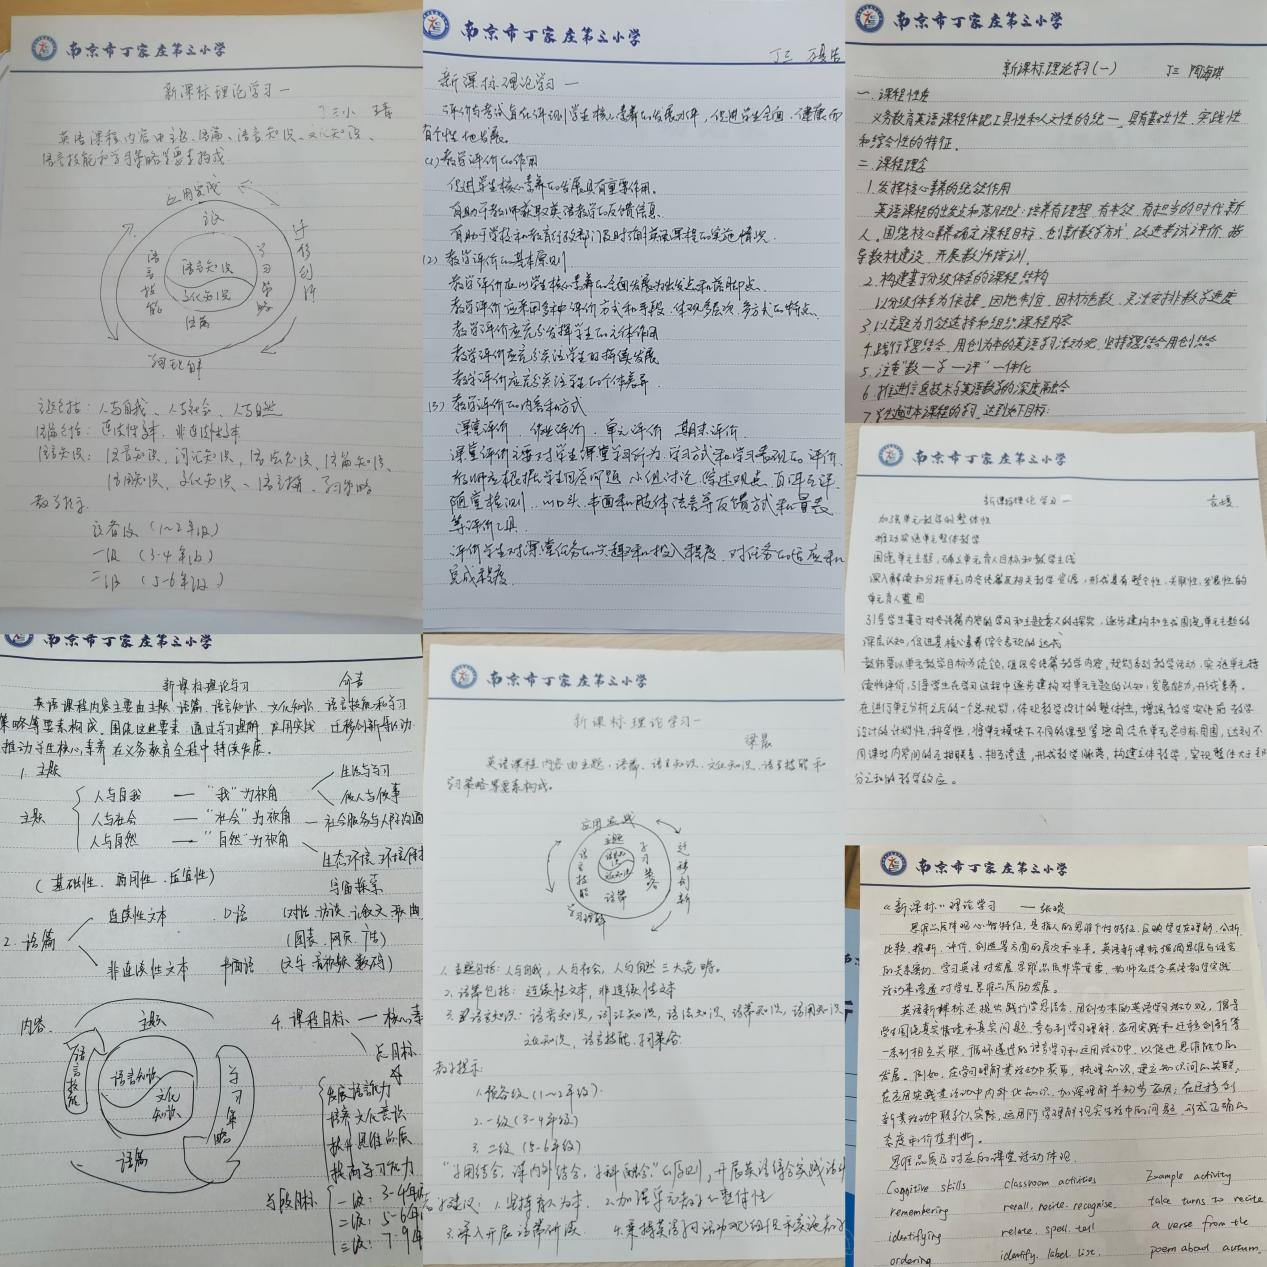 南京市丁家庄第三小学
新课标理论学习一
丁三小
英语课程内容由主题、语篇、语言知识、文化知识、
语言技能和学习策略等要素构成.
应用实践
主题
语言技能
语言知识
文化知识
学习策略
语篇
学习理解
迁移创新
主题包括：人与自我、人与社会、人与自然
语篇包括：连续性文本、非连续性文本
语言知识：语音知识，词汇知识，语法知识、语篇知识、
语用知识、文化知识、语言技能、学习策略
教学提示
预备级（1~2年级）
一级（3-4年级）
二级（5-6年级）
南京市丁家庄第三小学
丁三
新课标理论学习一
评价与考试旨在评测学生核心素养的发展水平，促进学生全面、健康而
有个性地发展。
(1) 教学评价的作用
促进学生核心素养的发展具有重要作用。
有助于教师获取英语教学的反馈信息。
有助于学校和教育行政部门及时了解英语课程的实施情况.
(2) 教学评价的基本原则
教学评价应以学生核心素养的全面发展为出发点和落脚点.
教学评价应采用多种评价方式和手段，体现多层次、多方式的特点.
教学评价应充分发挥学生的主体作用
教学评价应充分关注学生的持续发展
教学评价应充分关注学生的个体差异.
(3) 教学评价的内容和方式
课堂评价、作业评价、单元评价 期末评价.
课堂评价主要对学生课堂学习行为、学习方式和学习表现的评价.
教师应根据学生回答问题、小组讨论、综述观点、自评互评、
随堂检测.. 以口头、书面和肢体语言等反馈方式和量表
等评价工具.
评价学生对课堂任务的兴趣和投入程度、对任务的适应和
完成程度.
南京市丁家庄第三小学
新课标理论学习(一) 丁三 陶海琪
一. 课程性质
义务教育英语课程体现工具性和人文性的统一，具有基础性、实践性
和综合性的特征。
二. 课程理念
1. 发挥核心素养的统领作用
英语课程的出发点和落脚点：培养有理想、有本领、有担当的时代新
人。围绕核心素养确定课程目标、创新教学方式、改进考试评价、指
导教材建设、开展教师培训。
2. 构建基于分级体系的课程结构
以分级体系为依据，因地制宜、因材施教，灵活安排教学进度
3. 以主题为引领选择和组织课程内容
4. 践行学思结合、用创为本的英语学习活动观，坚持学思结合用创结合
5. 注重"教-学-评"一体化
6. 推进信息技术与英语教学的深度融合
7. 学生通过本课程的学习，达到如下目标:
南京市丁家庄第三小学
新课标理论学习一
加强单元教学的整体性
推动实施单元整体教学
围绕单元主题，确立单元育人目标和教学主线
深入解读和分析单元内各语篇及相关教学资源，形成具有整合性、关联性、发展性的
单元育人蓝图
引导学生基于对各语篇内容的学习和主题意义的探究，逐步建构和生成围绕单元主题的
深层认知，促进其核心素养综合表现的达成
教师要以单元教学目标为统领，组织各语篇教学内容，规划系列教学活动，实施单元持
续性评价，引导学生在学习过程中逐步建构对单元主题的认知，发展能力，形成素养。
在进行单元分析之后的一个总规划，体现教学设计的整体性，增强教学实施前教学
设计的计划性、科学性，将单元模块下不同的课型紧密围绕在单元总目标周围，达到不
同课时内容间的互相联系、相互渗透，形成教学脉络，构建立体教学，实现整体大于部
分之和的教学效应。
南京市丁家庄第三小学
新课程理论学习
英语课程内容主要由主题、语篇、语言知识、文化知识、语言技能和学习
策略等要素构成。围绕这些要素，通过学习理解、应用实践、迁移创新等活动
推动学生核心素养在义务教育全程中持续发展。
1. 主题
主题
人与自我 — "我"为视角
生活与学习
做人与做事
人与社会 — "社会"为视角 — 社会服务与人际沟通
人与自然 → "自然"为视角
生态环境、环境保护
宇宙探索
（基础性、时间性、适宜性）
2. 语篇
连续性文本 口语 （对话、访谈、记叙文、歌曲
（图表、网页、广告）
非连续性文本 书面语 （文字、音视频、数码）
内容:
主题
语言技能
语言知识
文化知识
学习策略
语篇
4. 课程目标 — 核心素
总目标
发展语言能力
培养文化意识
提升思维品质
提高学习能力
学段目标
一级：3-4年
二级：5-6年
三级：7-9年
南京市丁家庄第三小学
新课标理论学习一
梁晨
英语课程内容由主题、语篇、语言知识、文化知识、语言技能和
学习策略等要素构成。
应用实践
主题
语言技能
学习策略
语篇
学习理解
迁移创新
1. 主题包括：人与自我，人与社会，人与自然三大范畴。
2. 语篇包括：连续性文本，非连续性文本
语音知识，词汇知识，语法知识、语篇知识，语用知识
文化知识，语言技能，学习策略
教学提示:
1. 预备级（1~2年级）
2. 一级（3-4年级）
3. 二级（5-6年级）
"学用结合，课内外结合，学科融合"的原则，开展英语综合实践活动
教学建议：1. 坚持育人为本. 2. 加强单元教学的整体性
3. 深入开展语篇研读. 4. 秉持英语学习活动观组织和实施教学
南京市丁家庄第三小学
《新课标》理论学习 ——张晓
思维品质体现心智特征，是指人的思维个性特征，反映学生在理解、分析、
比较、推断、评价、创造等方面的层次和水平。英语新课标强调思维与语言
的关系密切，学习英语对发展思维品质非常重要，教师应结合英语教学实践
活动来渗透对学生思维品质的发展。
英语新课标还提出践行学思结合、用创为本的英语学习活动观，倡导
学生围绕真实情境和真实问题，参与到学习理解、应用实践和迁移创新等
一系列相互关联、循环递进的语言学习和运用活动中，以促进思维能力的
发展。例如，在学习理解类活动中获取、梳理知识，建立知识间的关联；
在应用实践类活动中内外化知识，加深理解并初步应用；在迁移创
新类活动中联系个人实际，运用所学理解现实生活中的问题，形成正确的
态度和价值判断。
思维品质及对应的课堂活动体现.
Cognitive skills classroom activities Example activity
remembering recall, recite, recognise, take turns to recite
identifying relate, spell, tell a verse from the
ordering identify, label, list, poem about autumn.